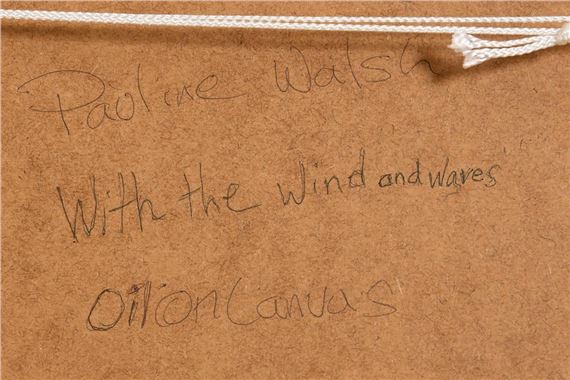 Pauline Walsh
With the wind and waves"
Oil on Canvas